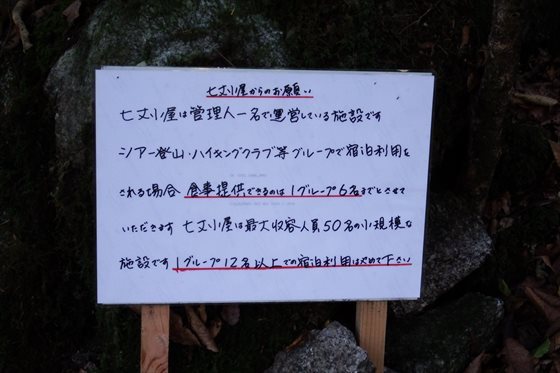 七丈小屋からのお願い
七丈小屋は管理人一名で運営している施設です
ツアー登山・ハイキングクラブ等グループで宿泊利用を
される場合、食事提供できるのは1グループ6名までとさせて
いただきます 七丈小屋は最大収容人員50名の小規模な
施設です 1グループ12名以上での宿泊利用はやめて下さい